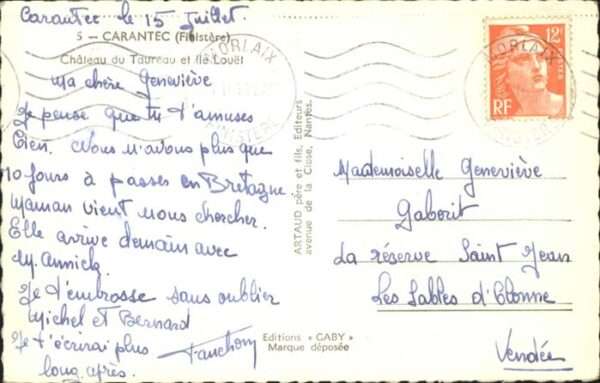 Carantec le 15 Juillet.
5 — CARANTEC (Finistère)
Château du Taureau et Ile Louët
Ma chère Geneviève
Je pense que tu t'amuses
bien. Nous n'avons plus que
10 jours à passer en Bretagne.
Maman vient nous chercher.
Elle arrive demain avec
M. Annick
Je t'embrasse sans oublier
Michel et Bernard
Je t'écrirai plus
long après.
Fanchon
ARTAUD père et fils, Editeurs
avenue de la Close, Nantes.
Editions "GABY"
Marque déposée
MORLAIX
FINISTERE
12F
POSTES
RF
MORLAIX
FINISTERE
Mademoiselle Geneviève
Gaborit
La réserve Saint Jean
Les Sables d'Olonne
Vendée